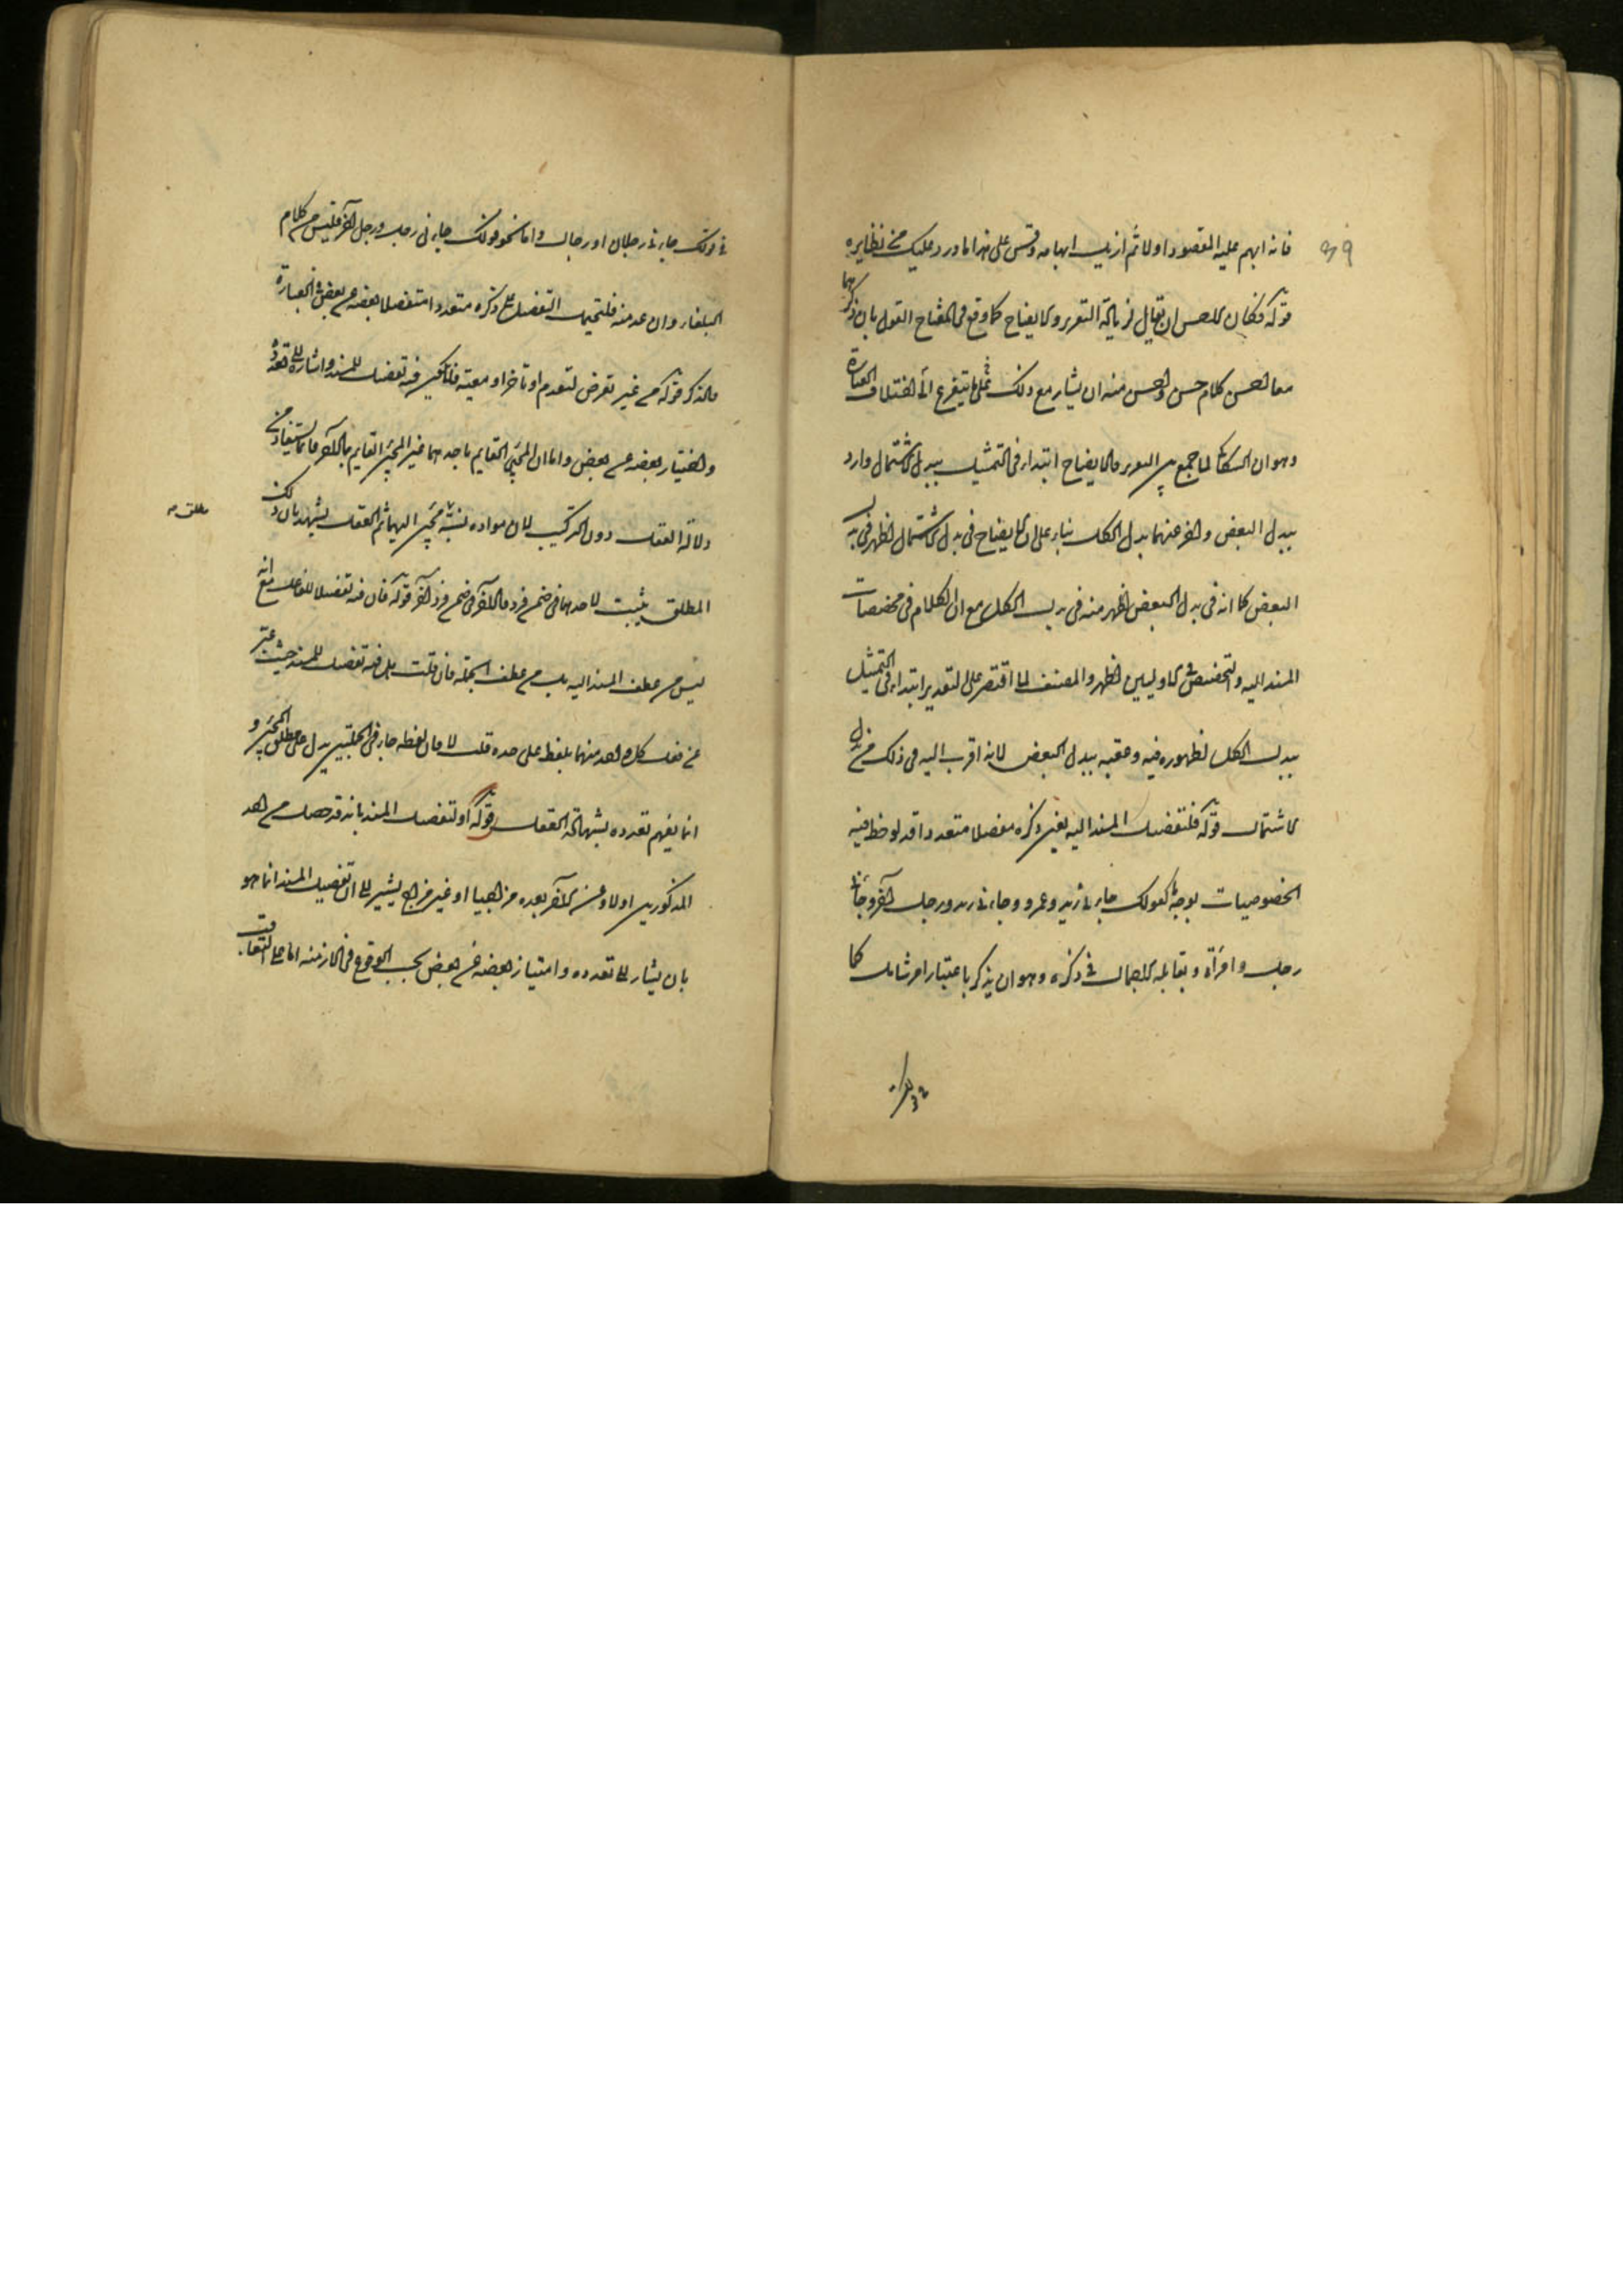 فانه ابهم عليه المقصود اولا ثم ازيل ابهامه وقس على هذا ما ورد عليك من نظايره
قوله وكان الاحسن ان يقال لزيادة التقرير والايضاح كما وقع في المفتاح القول بان ذكرهما
معا احسن كلام حسن واحسن منه ان يشار مع ذلك الى اختلاف العبارة
وهو ان السكاكي لما جمع بين التقرير والايضاح ابتداء في التمثيل ببدل الاشتمال واردف
ببدل البعض واخر عنهما بدل الكل بناء على ان الايضاح في بدل الاشتمال اظهر في بدل
البعض كما انه في بدل البعض اظهر منه في بدل الكل مع ان الكلام في مخصصات
المسند اليه والتخصيص في الاوليين اظهر والمصنف لما اقتصر على التقرير ابتداء في التمثيل
ببدل الكل لظهوره فيه وعقبه ببدل البعض لانه اقرب اليه في ذلك من بدل
الاشتمال قوله فلتفصيل المسند اليه يعني ذكره مفصلا متعددا قد لوحظ فيه
الخصوصيات بوجه كقولك جاءني زيد وعمرو وجاءني زيد ورجل آخر وجاءني
رجل وامرأة ويقابله الاجمال في ذكره وهو ان يذكر باعتبار امر شامل كما
في قولك جاءني رجلان او رجال واما نحو قولك جاءني رجل ورجل آخر فليس من كلام
البلغاء وان عد منه فليحمل التفصيل على ذكره متعددا منفصلا بعضه عن بعض في العبارة
والذكر قوله من غير تعرض لتقدم او تاخر او معية فلا يكون فيه تفصيل للمسند واشارة الى تعدده
وامتياز بعضه عن بعض واما ان المجيء القايم باحدهما غير المجيء القايم بالآخر فانما يستفاد من
دلالة العقل دون التركيب لان مفاده نسبة مجيء اليهما ثم العقل يشهد بان ذلك
مطلق صح
المطلق يثبت لاحدهما في ضمن فرد وللآخر في ضمن فرد آخر قوله فان فيه تفصيلا للفاعل مع انه
ليس من عطف المسند اليه بل من عطف الجملة فان قلت بل فيه تفصيل للمسند حيث عبر
عن فعل كل واحد منهما بلفظ على حده قلت لا فان لفظه جاء في الجملتين يدل على مطلق المجيء و
انما يفهم تعدده بشهادة العقل قوله او لتفصيل المسند بانه قد حصل من احد
المذكورين اولا وعن الآخر بعده متراخيا او غير متراخ يشير الى ان تفصيل المسند انما هو
بان يشار الى تعدده وامتياز بعضه عن بعض بحسب الوقوع في الازمنة اما على التعاقب